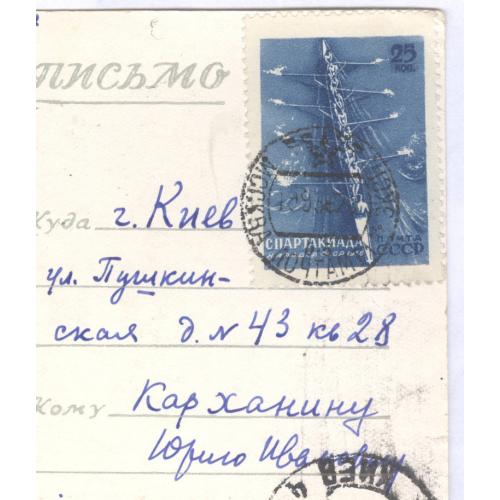 ПИСЬМО
25
КОП.
СПАРТАКИАДА
ПОЧТА
СССР
Куда г. Киев
ул. Пушкин-
ская д. № 43 кв 28
Кому Карханину
Юрию Ивановичу
КИЕВ